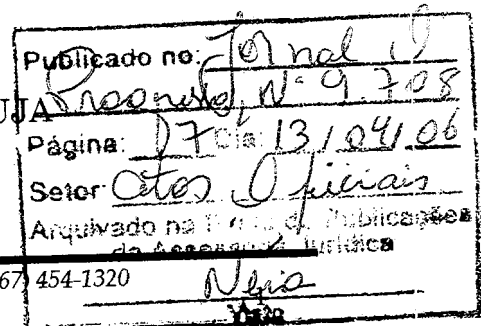 Publicado no: Jornal O
Progresso, Nº 9.708
UJA
Página: 17 Dia: 13/04/06
Setor: Atos Oficiais
Arquivado na de Publicações
da Assessoria Jurídica
67) 454-1320